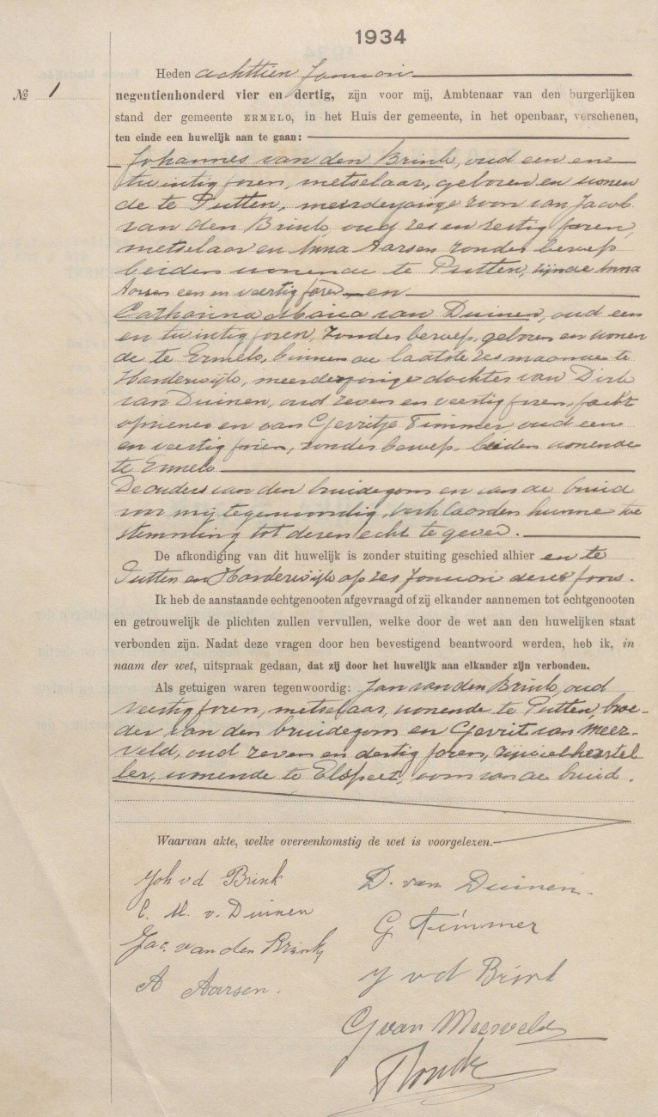 1934
Heden achttien Januari
№ 1
negentienhonderd vier en dertig, zijn voor mij, Ambtenaar van den burgerlijken
stand der gemeente ERMELO, in het Huis der gemeente, in het openbaar, verschenen,
ten einde een huwelijk aan te gaan:
Johannes van den Brink, oud een en
twintig jaren, metselaar, geboren en wonen
de te Putten, meerderjarige zoon van Jacob
van den Brink, oud zes en zestig jaren,
metselaar en Anna Aarsen zonder beroep
beiden wonende te Putten, zijnde Anna
Aarsen een en veertig jaren en
Catharina Maria van Duinen, oud een
en twintig jaren, zonder beroep, geboren en wonen
de te Ermelo, binnen de laatste zes maanden te
Harderwijk, meerderjarige dochter van Dirk
van Duinen, oud zeven en veertig jaren,
opnemer en van Gerritje Timmer, oud een
en veertig jaren, zonder beroep, beiden wonende
te Ermelo
De ouders van den bruidegom en van de bruid
voor mij tegenwoordig, verklaarden hunne toe
stemming tot deren echt te geven.
De afkondiging van dit huwelijk is zonder stuiting geschied alhier en te
Putten en Harderwijk op zes Januari dezes jaars.
Ik heb de aanstaande echtgenooten afgevraagd of zij elkander aannemen tot echtgenooten
en getrouwelijk de plichten zullen vervullen, welke door de wet aan den huwelijken staat
verbonden zijn. Nadat deze vragen door hen bevestigend beantwoord werden, heb ik, in
naam der wet, uitspraak gedaan, dat zij door het huwelijk aan elkander zijn verbonden.
Als getuigen waren tegenwoordig: Jan van den Brink, oud
veertig jaren, metselaar, wonende te Putten, broe-
der van den bruidegom en Gerrit van Meer-
veld, oud zeven en dertig jaren, rijwielherstel
ler, wonende te Elspeet, oom van de bruid.
Waarvan akte, welke overeenkomstig de wet is voorgelezen.
Joh vd Brink
D. van Duinen.
C. M. v. Duinen
G Timmer
Jac. van den Brink
J vd Brink
A Aarsen.
G van Meerveld